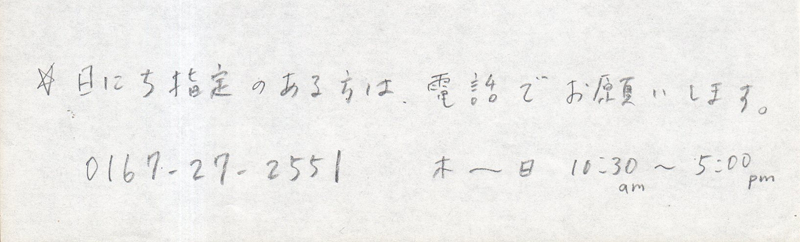 ☆ 日にち指定のある方は、電話でお願いします。
0167-27-2551 木〜日 10:30am 〜 5:00pm